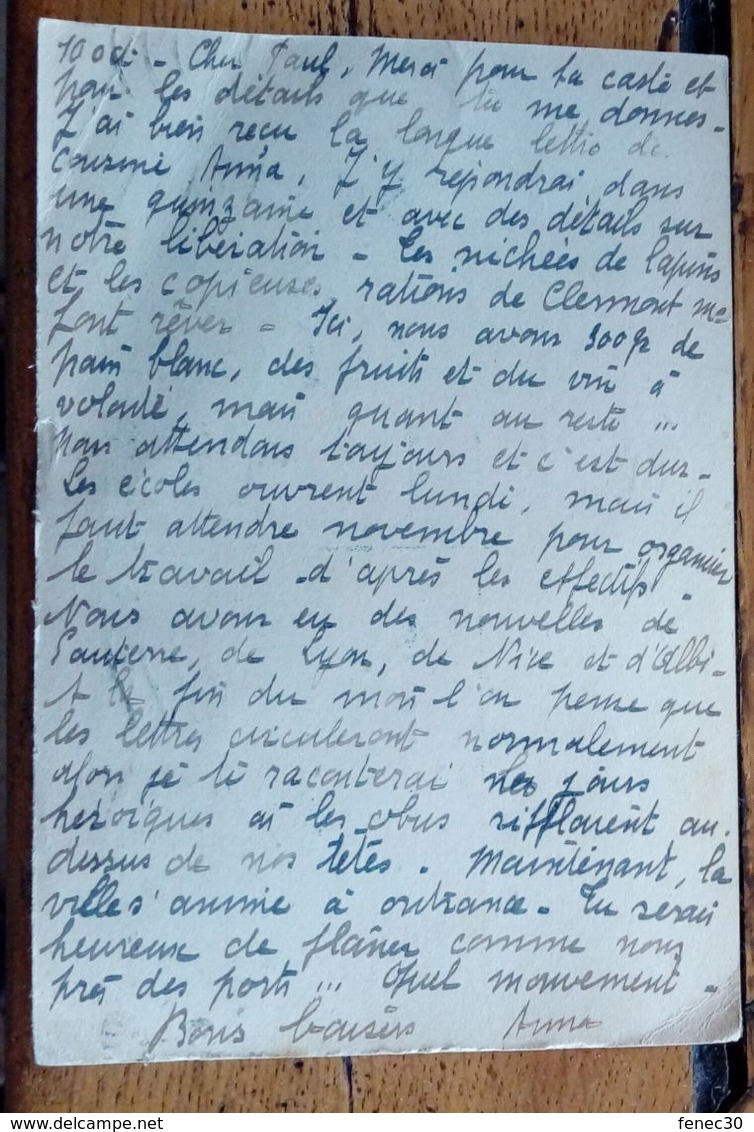 10 oct - Cher Paul, Merci pour ta carte et
pour les détails que tu me donnes -
J'ai bien reçu la longue lettre de
cousine Anna, J'y répondrai dans
une quinzaine et avec des détails sur
notre libération - Les nichées de lapins
et les copieuses rations de Clermont me
font rêver - Ici, nous avons 300 gr de
pain blanc, des fruits et du vin à
volonté, mais quant au reste ...
nous attendons toujours et c'est dur -
Les écoles ouvrent lundi, mais il
faut attendre novembre pour organiser
le travail d'après les effectifs -
Nous avons eu des nouvelles de
Sauterre, de Lyon, de Nice et d'Albi -
A la fin du mois l'on pense que
les lettres circuleront normalement
alors je te raconterai les jours
héroïques où les obus sifflaient au-
dessus de nos têtes. Maintenant, la
ville s'anime à outrance - Tu serais
heureux de flâner comme nous
près des ports ... Quel mouvement -
Bons baisers Anna
fenec30